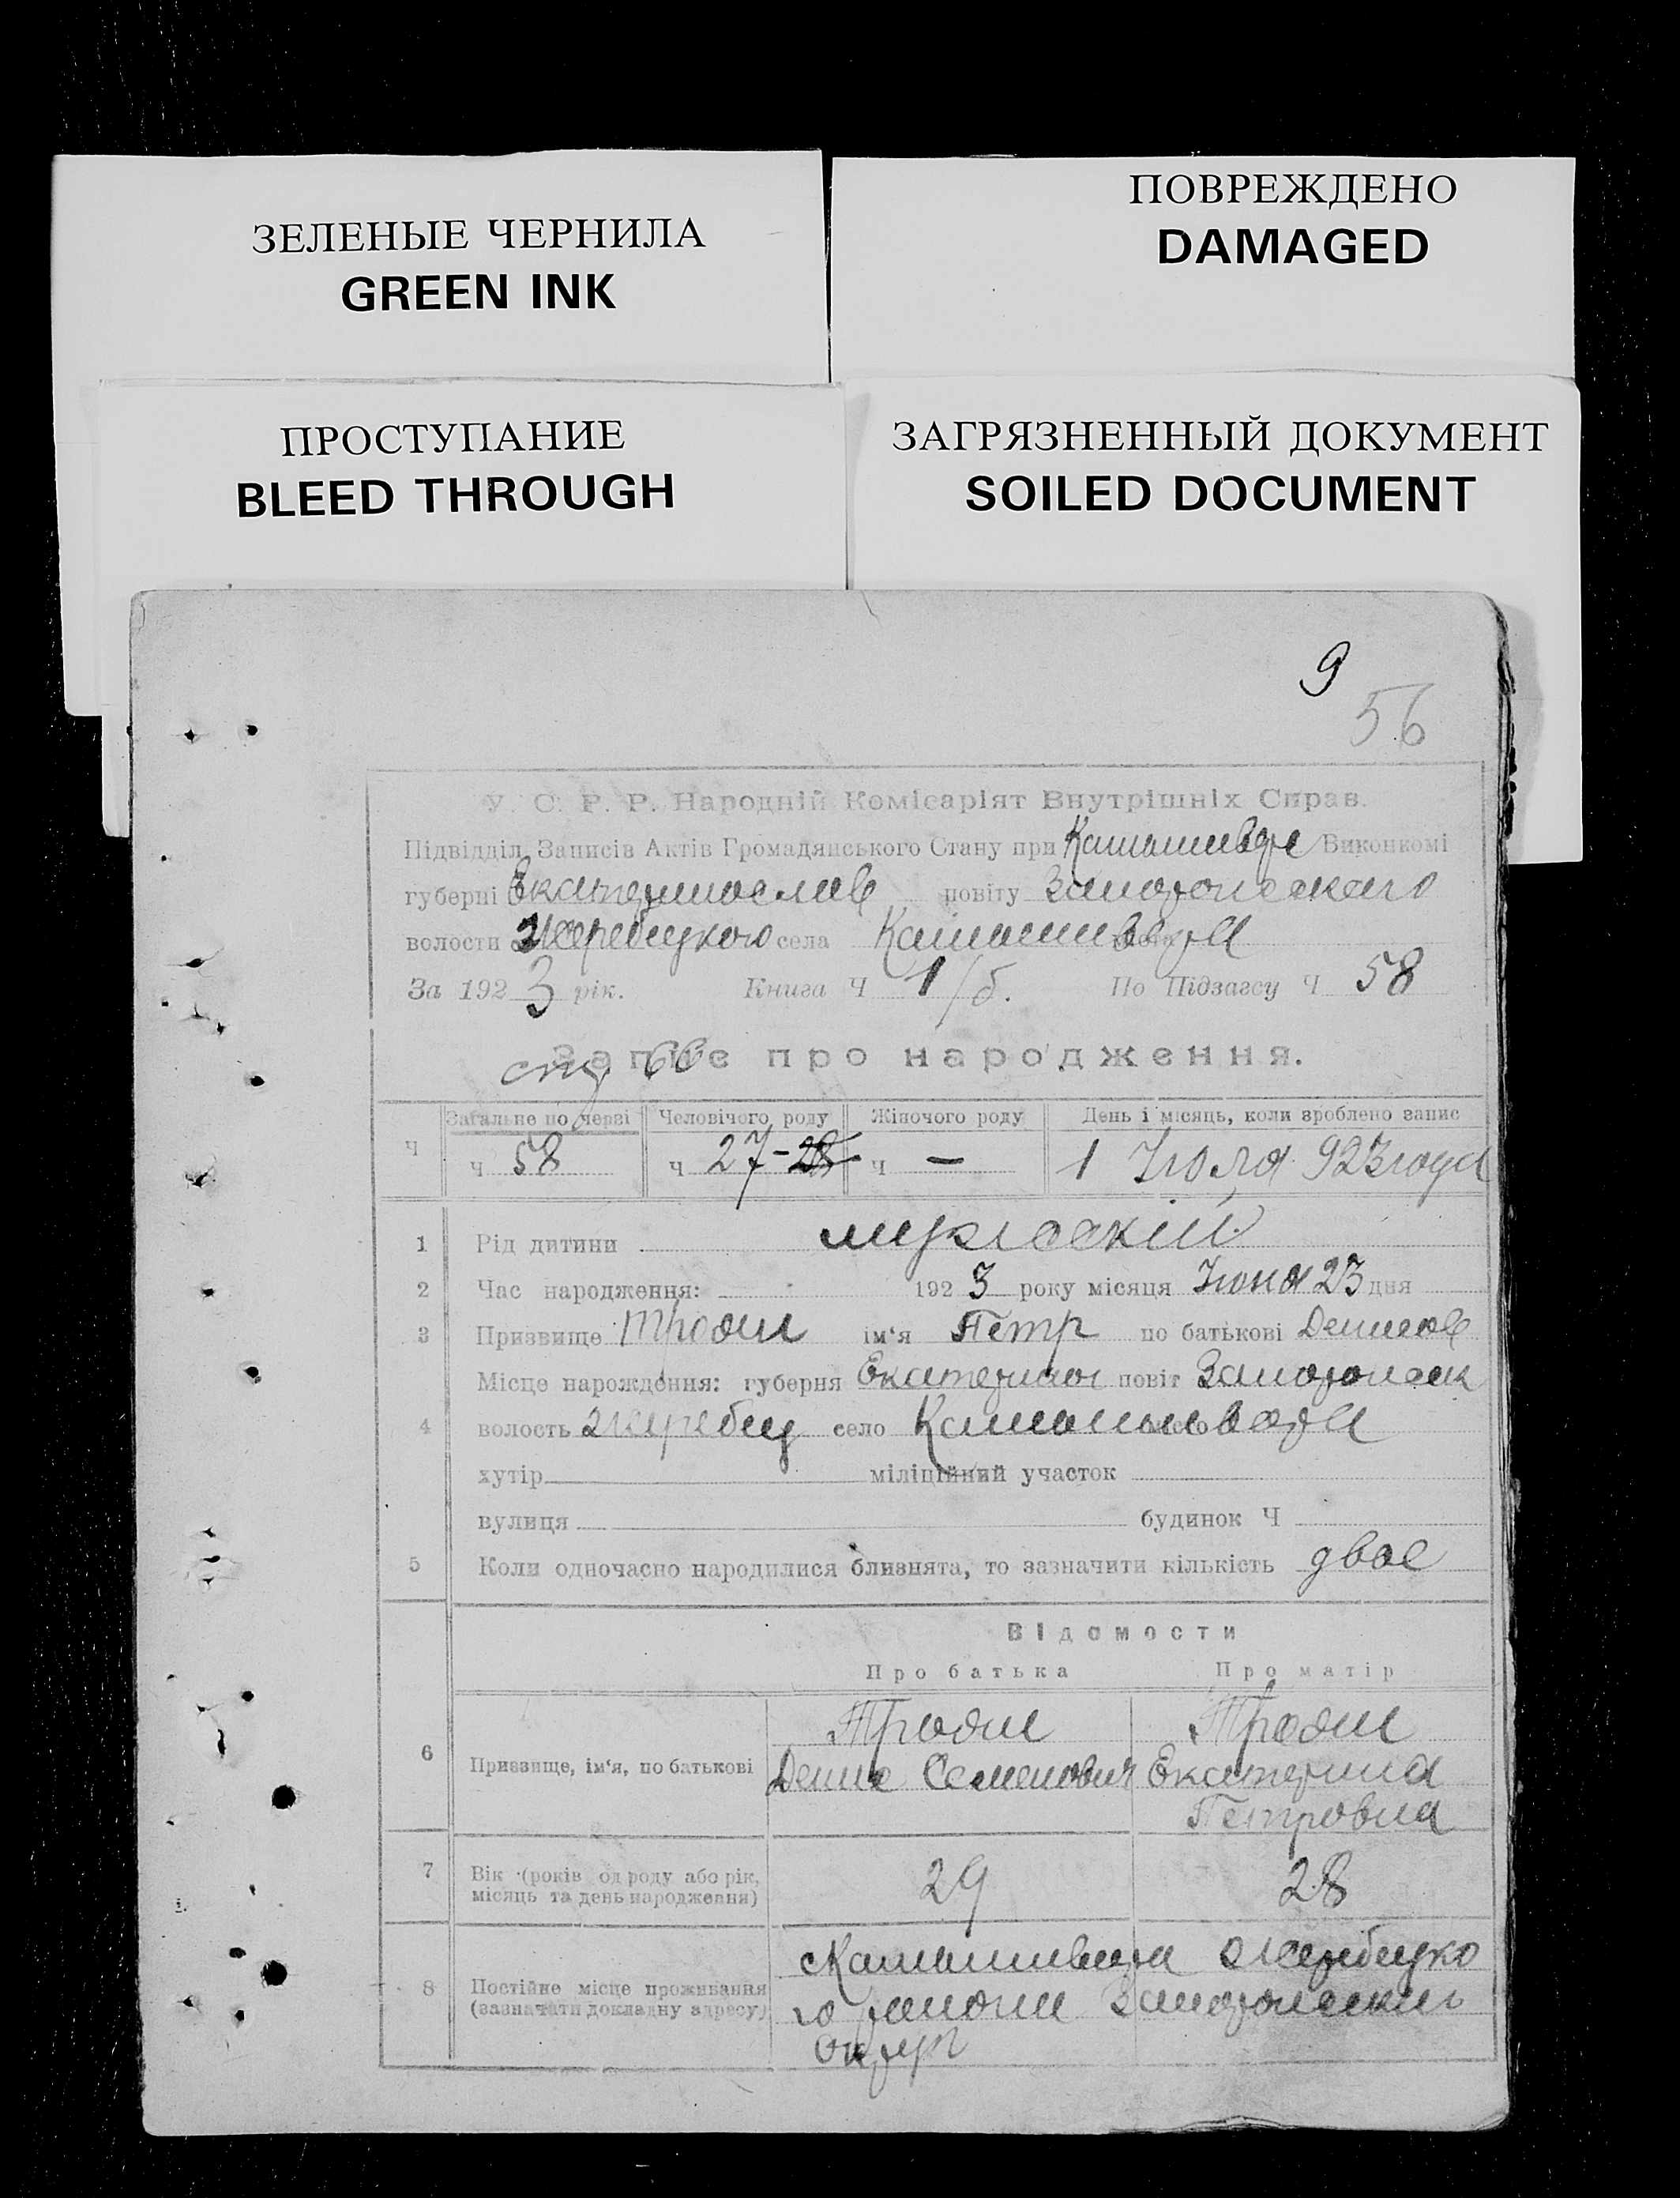 ЗЕЛЕНЫЕ ЧЕРНИЛА
GREEN INK
ПОВРЕЖДЕНО
DAMAGED
ПРОСТУПАНИЕ
BLEED THROUGH
ЗАГРЯЗНЕННЫЙ ДОКУМЕНТ
SOILED DOCUMENT
9
56
У. С. Р. Р. Народній Комісаріят Внутрішніх Справ.
Підвідділ Записів Актів Громадянського Стану при Виконкомі
губерні Екатеринослав повіту Запорожскаго
волости Жеребецкого села
За 1923 рік. Книга Ч 1/б. По Підзагсу Ч 58
Запис про народження.
стр 66
Ч Загальне по черзі Человічого роду Жіночого роду День і місяць, коли зроблено запис
ч 58 ч 27-28 ч — 1 Июля 923 года
1 Рід дитини мужеский
2 Час народження: 1923 року місяця Июня 23 дня
3 Призвище Троян ім‘я Петр по батькові Денисов
Місце нарождення: губерня Екатеринос повіт Запорожск
4 волость Жеребец село
хутір міліційний участок
вулиця будинок Ч
5 Коли одночасно народилися близнята, то зазначити кількість двое
Відомости
Про батька Про матір
6 Призвище, ім‘я, по батькові
Троян Троян
Денис Семенович Екатерина
Петровна
7 Вік (років од роду або рік, місяць та день народження) 29 28
8 Постійне місце проживання (зазначати докладну адресу)
Жеребецко
го
округ